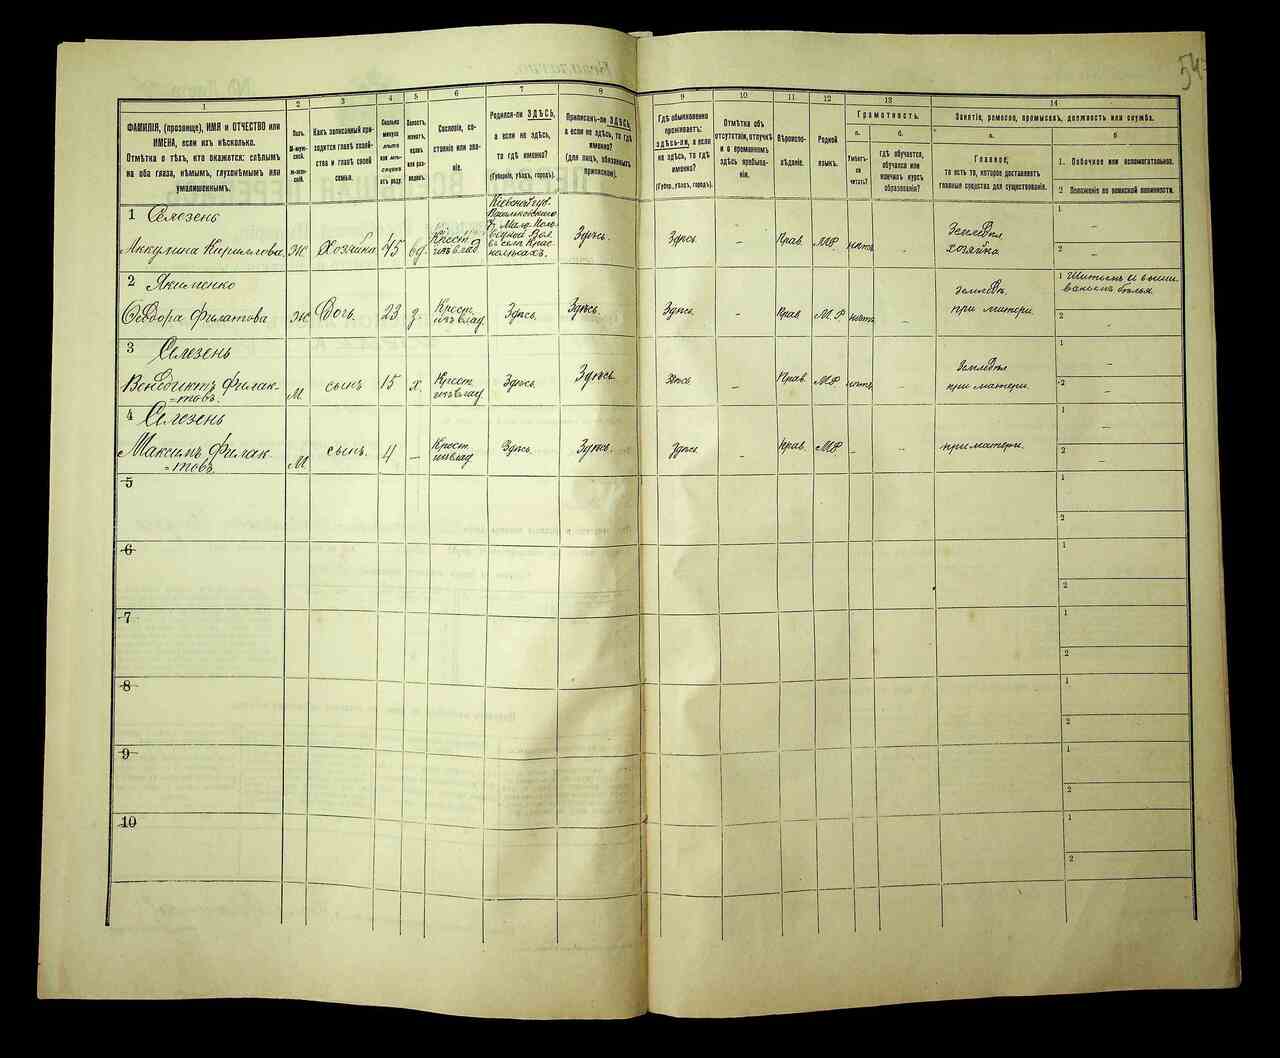 54
1
2
3
4
5
6
7
8
9
10
11
12
13
14
ФАМИЛІЯ, (прозвище), ИМЯ и ОТЧЕСТВО или
ИМЕНА, если ихъ нѣсколько.
Отмѣтка о тѣхъ, кто окажется: слѣпымъ
на оба глаза, нѣмымъ, глухонѣмымъ или
умалишеннымъ.
Полъ.
М-муж-
ской.
Ж-жен-
скій.
Какъ записанный при-
ходится главѣ хозяй-
ства и главѣ своей
семьи.
Сколько
минуло
лѣтъ
или мѣ-
сяцевъ
отъ роду.
Холостъ,
женатъ,
вдовъ
или раз-
веденъ.
Сословіе, со-
стояніе или зва-
ніе.
Родился-ли ЗДѢСЬ,
а если не здѣсь,
то гдѣ именно?
(Губернія, уѣздъ, городъ).
Приписанъ-ли ЗДѢСЬ,
а если не здѣсь, то гдѣ
именно?
(для лицъ, обязанныхъ
припискою).
Гдѣ обыкновенно
проживаетъ:
здѣсь-ли, а если
не здѣсь, то гдѣ
именно?
(Губер., уѣздъ, городъ).
Отмѣтка объ
отсутствіи, отлучкѣ
и о временномъ
здѣсь пребыва-
ніи.
Вѣроиспо-
вѣданіе.
Родной
языкъ.
Грамотность.
а.
б.
Умѣетъ-
ли
читать?
гдѣ обучается,
обучался или
кончилъ курсъ
образованія?
Занятіе, ремесло, промыселъ, должность или служба.
а.
б
Главное,
то есть то, которое доставляетъ
главныя средства для существованія.
1. Побочное или вспомогательное.
2 Положеніе по воинской повинности.
1 Селезень
Аккулина Кириллова
Ж
Хозяйка
45
вд.
Крест.
изъ влад.
Кіевской губ.
Васильковского
въ селѣ
Здѣсь.
Здѣсь
–
Прав.
МР
нѣтъ
–
Земледѣл.
хозяйка
1
–
2
–
2 Якименко
Ѳеодора Филатова
Ж
Дочь.
23
з.
Крест.
изъ влад.
Здѣсь.
Здѣсь.
Здѣсь.
–
Прав
М.Р
нѣтъ
–
земледѣл.
при матери.
1 Шитьемъ и
бѣлья.
2
–
3 Селезень
Венедиктъ Филак-
=товъ.
М
сынъ
15
х.
Крест.
изъ влад.
Здѣсь.
Здѣсь.
Здѣсь
–
Прав.
МР
нѣтъ
–
Земледѣл
при матери.
1
–
2
–
4 Селезень
Максимъ Филак-
=товъ.
М
сынъ.
4
–
Крест.
изъ влад
Здѣсь.
Здѣсь.
Здѣсь
–
Прав.
МР
–
–
при матери.
1
–
2
–
5
1
2
6
1
2
7
1
2
8
1
2
9
1
2
10
1
2